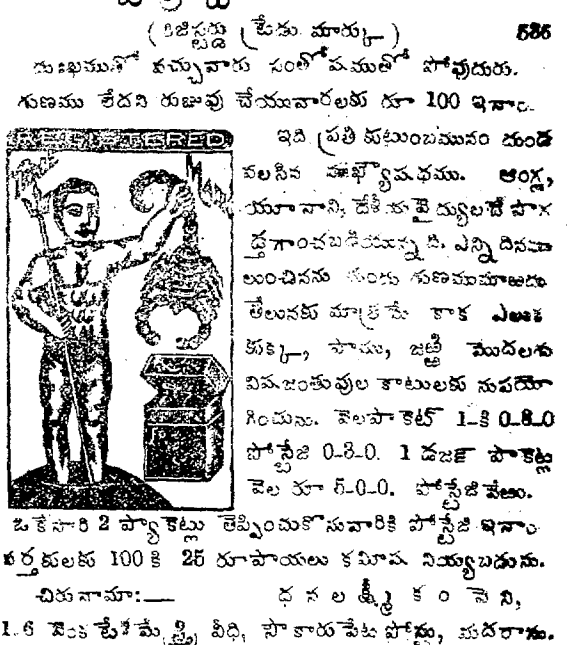 ( రిజిస్టర్డు ట్రేడు మార్కు )
దుఃఖముతో వచ్చువారు సంతోషముతో పోవుదురు.
గుణము లేదని రుజువు చేయువారలకు రూ 100 ఇనాం.
REGISTERED
ఇది ప్రతి కుటుంబమునం దుండ
వలసిన ముఖ్యౌషధము. ఆంగ్ల,
యూనాని, దేశీయ వైద్యులచే పొగ
డ్తగాంచబడియున్నది. ఎన్ని దినము
లుంచినను మందు గుణముమారదు
తేలునకు మాత్రమే కాక ఎలుక
కుక్క, పాము, జఱ్ఱి మొదలగు
విషజంతువుల కాటులకు నుపయో
గించును. వెలపాకెట్ 1-కి 0-8-0
పోస్టేజి 0-8-0. 1 డజన్ పాకెట్ల
వెల రూ 5-0-0. పోస్టేజి వేఱు.
ఒకేసారి 2 ప్యాకెట్లు తెప్పించుకొనువారికి పోస్టేజి ఇనాం
వర్తకులకు 100 కి 25 రూపాయలు కమీషన్ నియ్యబడును.
చిరునామా:— ధనలక్ష్మీ కంపెని,
1.6 వెంకటేశమేస్త్రి వీధి, సౌకారుపేట పోస్టు, మదరాసు.